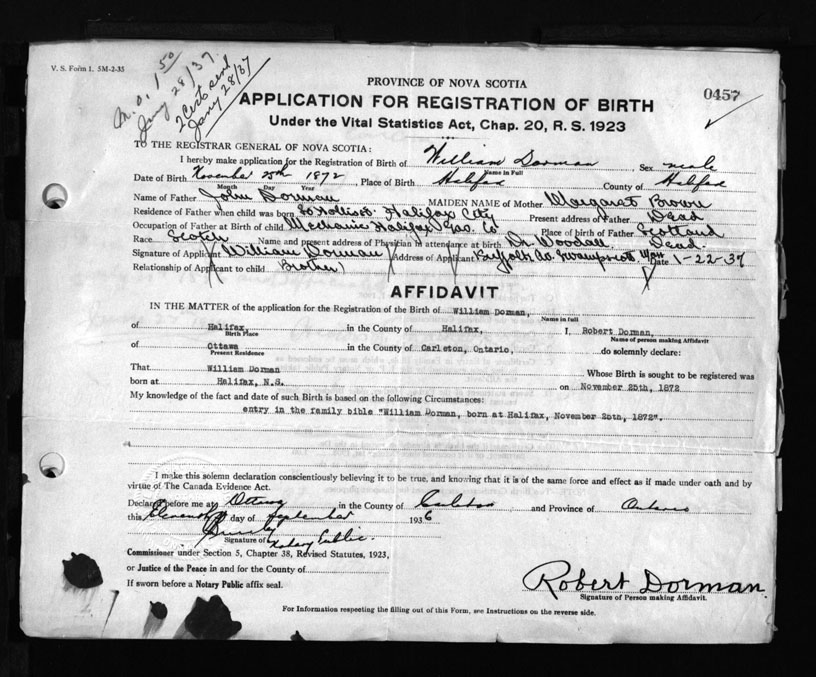 V. S. Form 1. 5M-2-35
M.O. 1.50
Jany 28/37.
2 Certs send
Jany 28/37
0457
PROVINCE OF NOVA SCOTIA
APPLICATION FOR REGISTRATION OF BIRTH
Under the Vital Statistics Act, Chap. 20, R. S. 1923
TO THE REGISTRAR GENERAL OF NOVA SCOTIA:
I hereby make application for the Registration of Birth of William Dorman Sex male
Name in Full
Date of Birth November 25th 1872, Place of Birth Halifax County of Halifax
Month Day Year
Name of Father John Dorman MAIDEN NAME of Mother Margaret Brown
Residence of Father when child was born Hollis St. Halifax City Present address of Father Dead
Occupation of Father at Birth of child Mechanic Halifax Gas. Co Place of birth of Father Scotland
Race Scotch Name and present address of Physician in attendance at birth Dr. Woodall. Dead.
Signature of Applicant (William Dorman Address of Applicant Suffolk Co. Swampscott Mass Date 1-22-37
Relationship of Applicant to child Brother)
AFFIDAVIT
IN THE MATTER of the application for the Registration of the Birth of William Dorman,
Name in full
of Halifax, in the County of Halifax, I, Robert Dorman,
Birth Place Name of person making Affidavit
of Ottawa in the County of Carleton, Ontario, do solemnly declare:
Present Residence
That William Dorman Whose Birth is sought to be registered was
born at Halifax, N.S. on November 25th, 1872
My knowledge of the fact and date of such Birth is based on the following Circumstances:
entry in the family bible "William Dorman, born at Halifax, November 25th, 1872".
I make this solemn declaration conscientiously believing it to be true, and knowing that it is of the same force and effect as if made under oath and by
virtue of The Canada Evidence Act.
Declared before me at Ottawa in the County of Carleton and Province of Ontario
this Eleventh day of September 1936
Signature of Notary Public.
Commissioner under Section 5, Chapter 38, Revised Statutes, 1923,
or Justice of the Peace in and for the County of
If sworn before a Notary Public affix seal.
Robert Dorman.
Signature of Person making Affidavit.
For Information respecting the filling out of this Form, see Instructions on the reverse side.